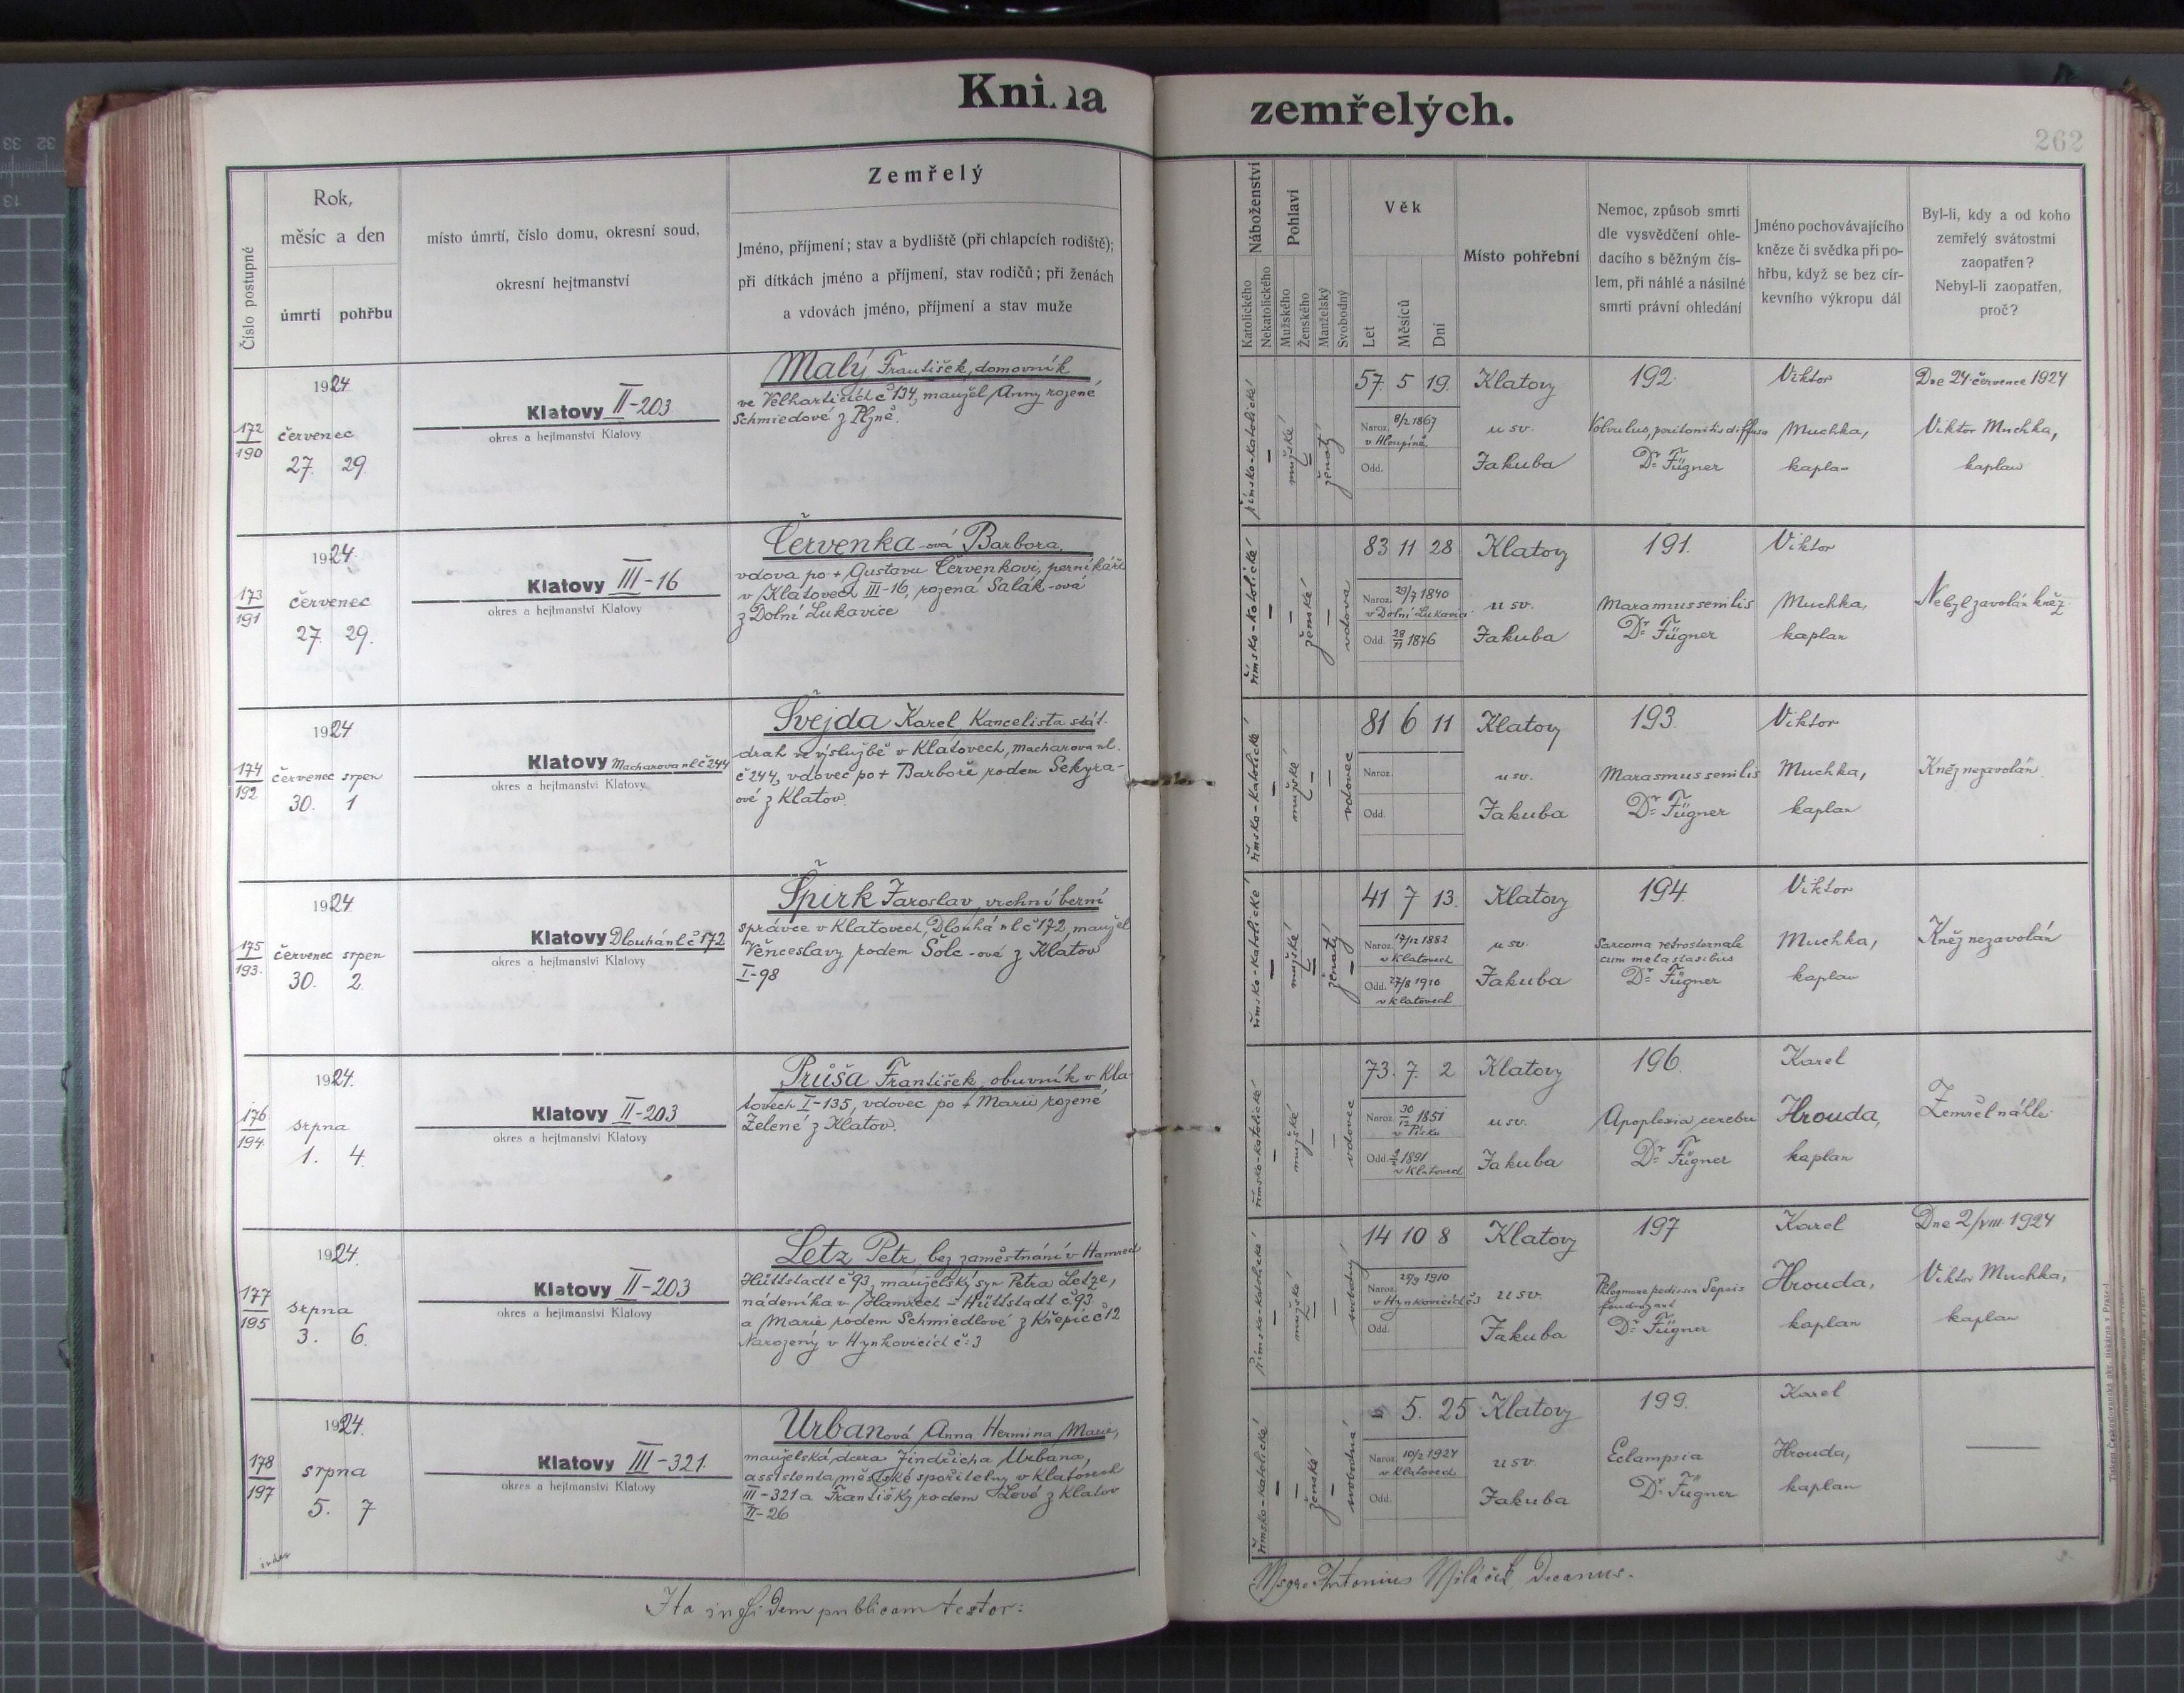 Kniha
zemřelých.
262
Číslo postupné
Rok,
měsíc a den
úmrtí
pohřbu
místo úmrtí, číslo domu, okresní soud,
okresní hejtmanství
Zemřelý
Jméno, příjmení; stav a bydliště (při chlapcích rodiště);
při dítkách jméno a příjmení, stav rodičů; při ženách
a vdovách jméno, příjmení a stav muže
Náboženství
Katolického
Nekatolického
Pohlaví
Mužského
Ženského
Manželský
Svobodný
Věk
Let
Měsíců
Dní
Místo pohřební
Nemoc, způsob smrti
dle vysvědčení ohle-
dacího s běžným čís-
lem, při náhlé a násilné
smrti právní ohledání
Jméno pochovávajícího
kněze či svědka při po-
hřbu, když se bez cír-
kevního výkropu dál
Byl-li, kdy a od koho
zemřelý svátostmi
zaopatřen?
Nebyl-li zaopatřen,
proč?
172
190
1924
červenec
27. 29.
Klatovy II-203
okres a hejtmanství Klatovy
Malý František, domovník
ve Velharticích č 134, manžel Anny rozené
Schmiedové z Plzně.
římsko-katolické
–
mužské
–
ženatý
57. 5 19.
Naroz. 8/2 1867
v Hloupině
Odd.
Klatovy
u sv.
Jakuba
192.
Volvulus, peritonitis diffusa
Dr Fügner
Viktor
Muchka,
kaplan
Dne 24. července 1924
Viktor Muchka,
kaplan
173
191
1924.
červenec
27. 29.
Klatovy III-16
okres a hejtmanství Klatovy
Červenka-ová Barbora,
vdova po + Gustavu Červenkovi, perníkáři
v Klatovech III-16, rozená Salák-ová
z Dolní Lukavice
římsko-katolické
–
–
ženské
–
vdova
83 11 28
Naroz. 29/7 1840
v Dolní Lukavici
Odd. 28/11 1876
Klatovy
u sv.
Jakuba
191.
Marasmus senilis
Dr Fügner
Viktor
Muchka,
kaplan
Nebyl zavolán kněz
174
192
1924
červenec srpen
30. 1
Klatovy Macharova ul č 244
okres a hejtmanství Klatovy
Švejda Karel, Kancelista stát.
drah ve výslužbě v Klatovech, Macharova ul.
č 244, vdovec po + Barboře rodem Sekyra-
ové z Klatov.
římsko-katolické
–
mužské
–
–
vdovec
81 6 11
Naroz.
Odd.
Klatovy
u sv.
Jakuba
193.
Marasmus senilis
Dr Fügner
Viktor
Muchka,
kaplan
Kněz nezavolán
175
193.
1924.
červenec srpen
30. 2.
Klatovy Dlouhá ul č 172
okres a hejtmanství Klatovy
Špirk Jaroslav, vrchní berní
správce v Klatovech, Dlouhá ul č 172, manžel
Věnceslavy rodem Šolc-ové z Klatov
I-98
římsko-katolické
–
mužské
–
ženatý
–
41 7 13.
Naroz. 17/12 1882
v Klatovech
Odd. 27/8 1910
v Klatovech
Klatovy
u sv.
Jakuba
194.
Sarcoma retrosternale
cum metastasibus
Dr Fügner
Viktor
Muchka,
kaplan
Kněz nezavolán
176
194.
1924.
srpna
1. 4.
Klatovy II-203
okres a hejtmanství Klatovy
Průša František, obuvník v Kla-
tovech I-135, vdovec po + Marii rozené
Zelené z Klatov.
římsko-katolické
–
mužské
–
–
vdovec
73. 7. 2
Naroz. 30/12 1851
v Písku
Odd. 1891
v Klatovech
Klatovy
u sv.
Jakuba
196.
Apoplexia cerebri
Dr Fügner
Karel
Hrouda,
kaplan
Zemřel náhle
177
195
1924.
srpna
3. 6.
Klatovy II-203
okres a hejtmanství Klatovy
Letz Petr, bez zaměstnání v Hamrech
Hüttstadt č 93, manželský syn Petra Letze,
nádeníka v Hamrech – Hüttstadt č 93
a Marie rodem Schmiedlové z Křepic č 12
Narozený v Hynkovicích č: 3
římsko-katolické
–
mužské
–
–
svobodný
14 10 8
Naroz. 25/9 1910
v Hynkovicích č3
Odd.
Klatovy
u sv.
Jakuba
197
Phlegmone pedis sin Sepsis
foudroyant
Dr Fügner
Karel
Hrouda,
kaplan
Dne 2/VIII. 1924
Viktor Muchka,
kaplan
178
197
1924.
srpna
5. 7
Klatovy III-321.
okres a hejtmanství Klatovy
Urbanová Anna Hermina Marie,
manželská dcera Jindřicha Urbana,
assistenta městské spořitelny v Klatovech
III-321 a Františky rodem z Klatov
II-26
římsko-katolické
–
–
ženské
–
svobodná
5. 25
Naroz. 10/2 1924
v Klatovech
Odd.
Klatovy
u sv.
Jakuba
199.
Eclampsia
Dr Fügner
Karel
Hrouda,
kaplan
index
Ita in fidem publicam testor:
Msgre Antonius Miláček decanus.